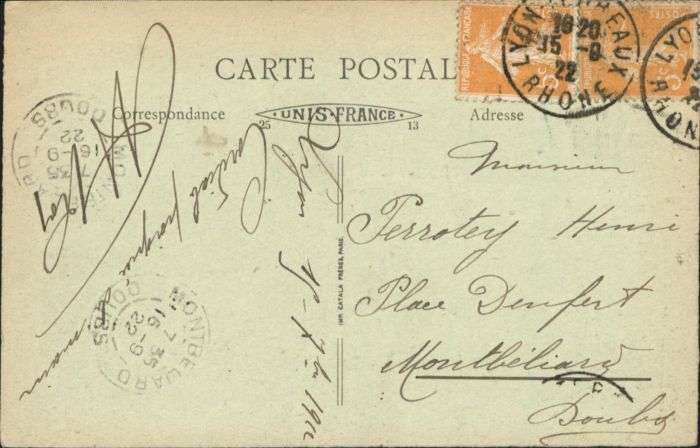 CARTE POSTALE
Correspondance
UNIS-FRANCE
25
13
Adresse
REPUBLIQUE FRANÇAISE
LYON-TERREAUX
18 20
15 -9
22
RHONE
LYON
RHONE
MONTBELIARD
7 35
16-9
22
DOUBS
MONTBELIARD
7 35
16-9
22
DOUBS
Lyon
Cordial
IMP. CATALA FRÈRES, PARIS
Monsieur
Perrotey Henri
Place Denfert
Montbéliard
Doubs